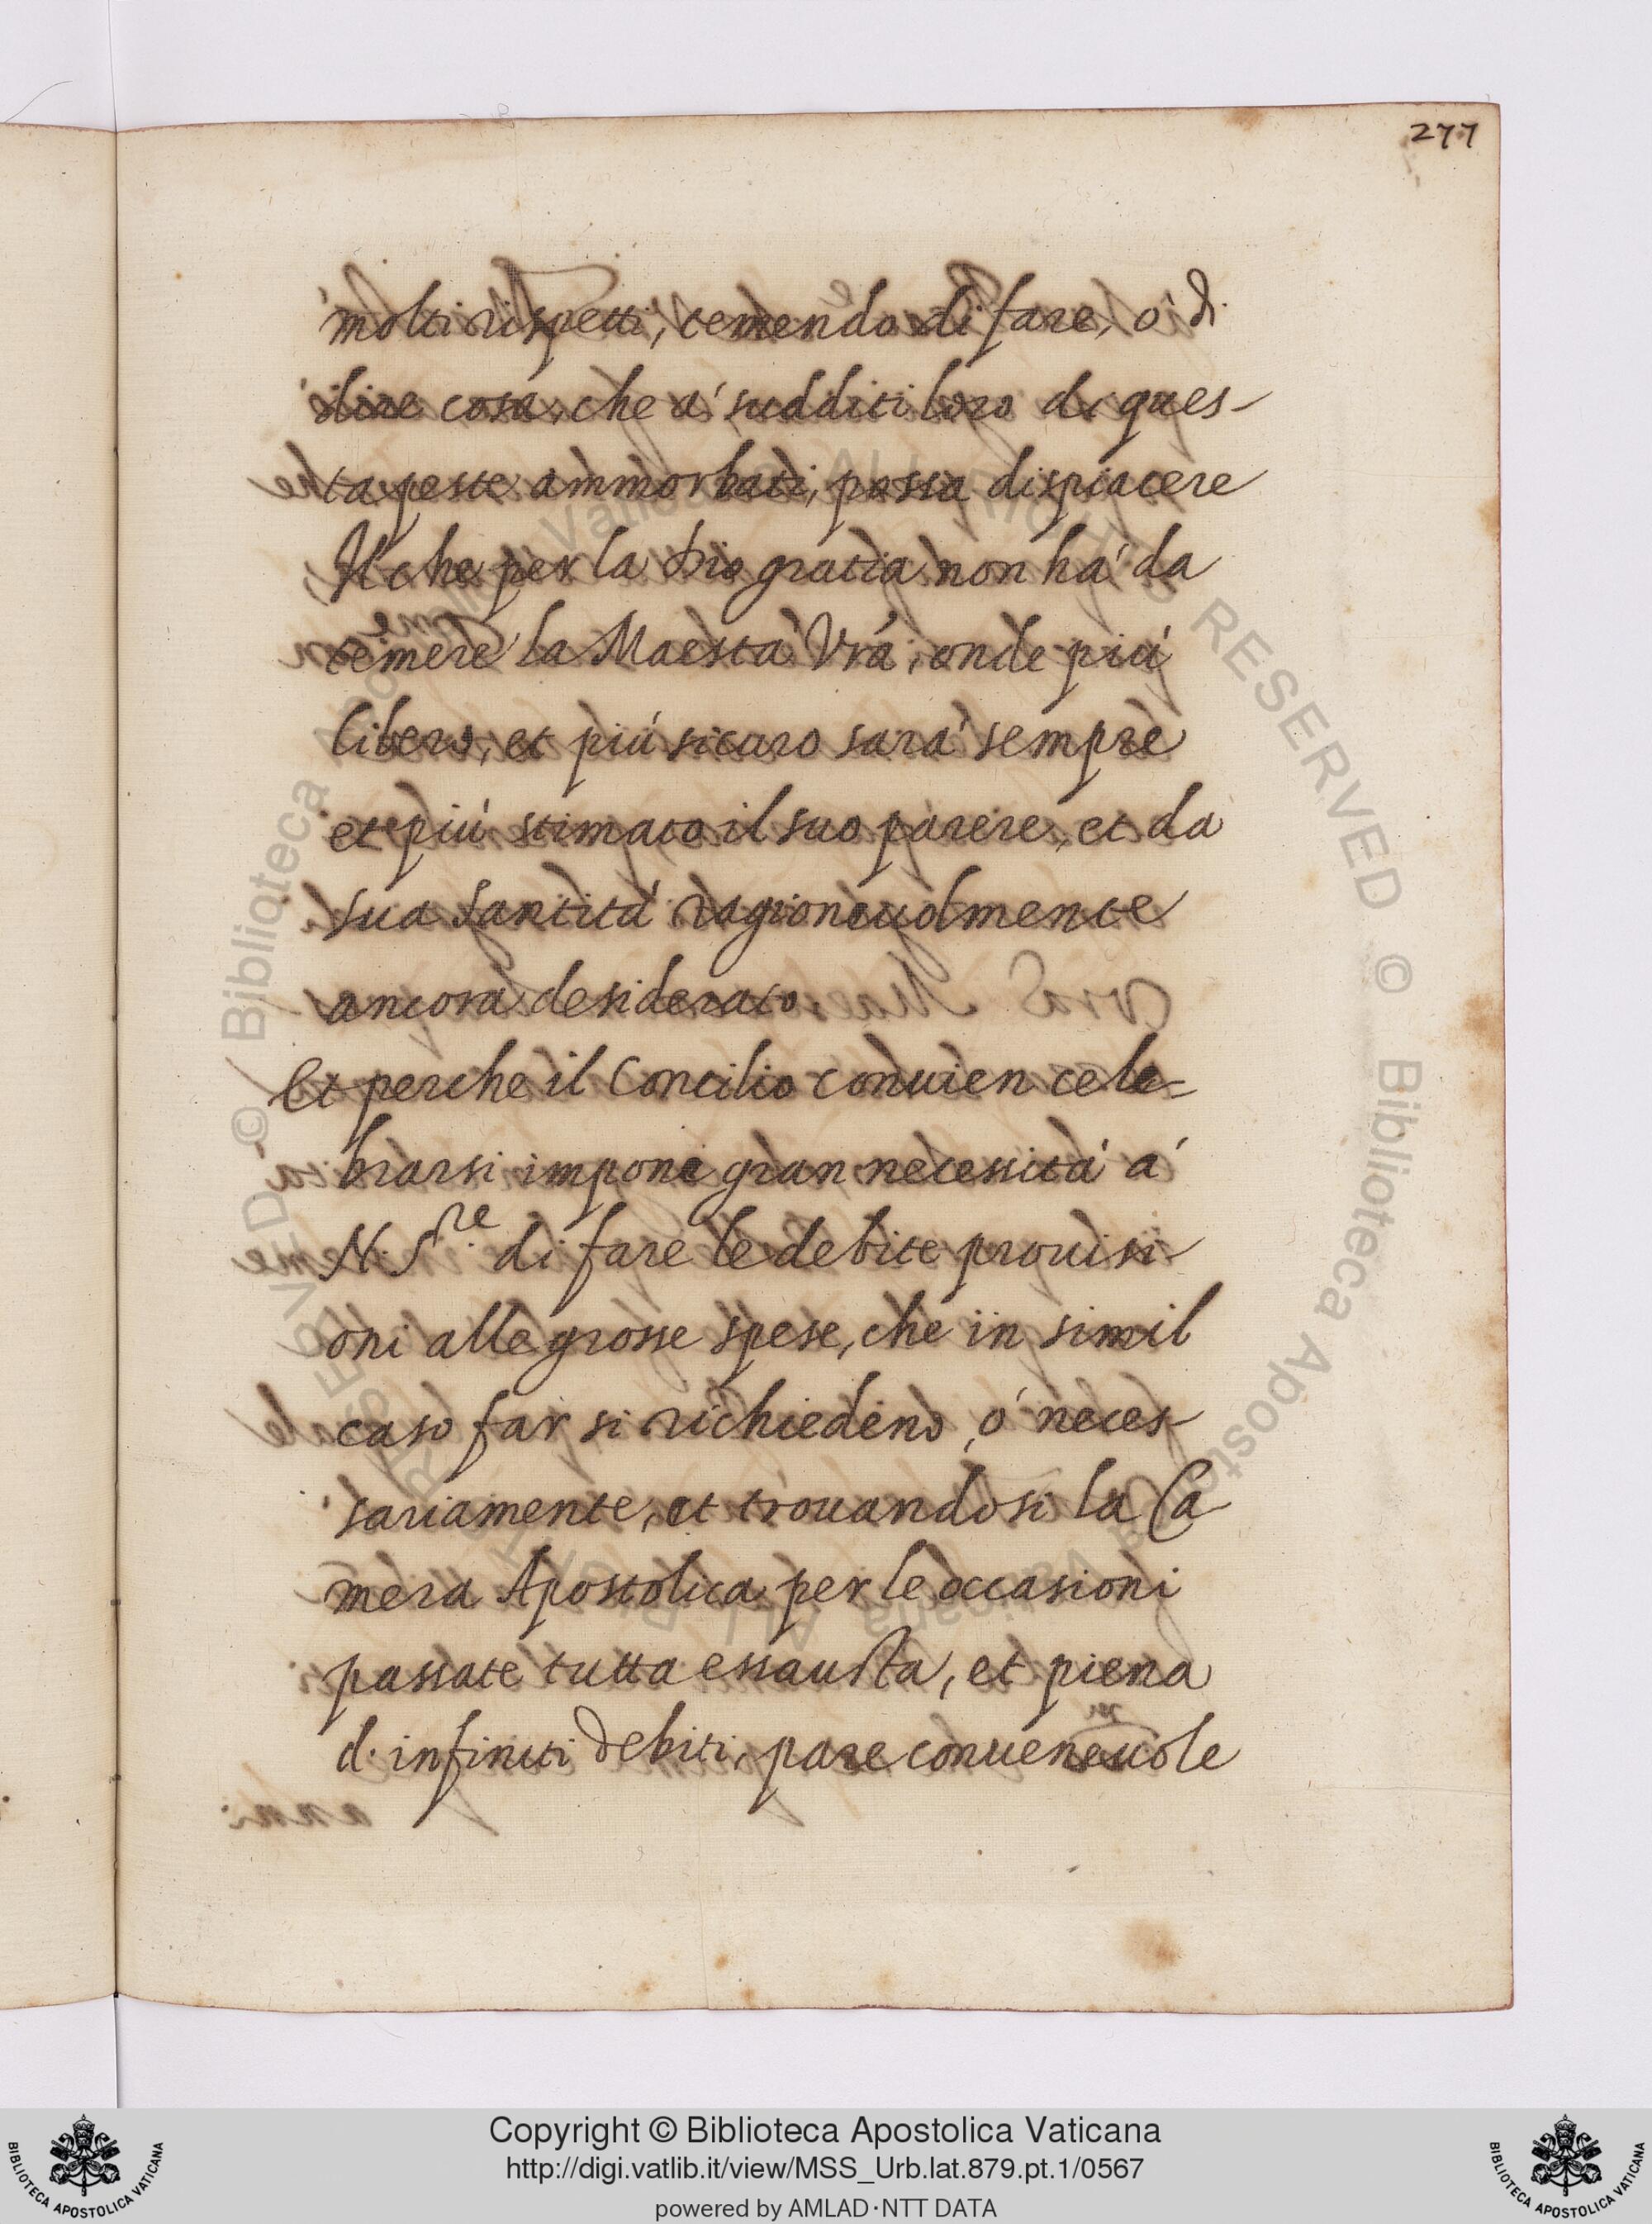 277
molti rispetti, temendo di fare, ò di
dire cosa, che a' sudditi loro di ques-
ta peste ammorbati, possa dispiacere
Il che per la Dio gratia non há da
temere la Maestà Vrá, onde piú
libero, et piú sicuro sará sempre
et piú stimato il suo parere, et da
sua Santitá ragioneuolmente
ancora desiderato.
Et perche il Concilio conuien cele=
brarsi impone gran necessitá á
N. S.re di fare le debite prouisi-
oni alle grosse spese, che in simil
caso far si richiedeno, ó neces-
sariamente, et trouandosi la Ca-
mera Apostolica per le occasioni
passate tutta essausta, et piena
d'infiniti debiti, pare conueneuole
Copyright © Biblioteca Apostolica Vaticana
http://digi.vatlib.it/view/MSS_Urb.lat.879.pt.1/0567
powered by AMLAD·NTT DATA
BIBLIOTECA APOSTOLICA VATICANA
BIBLIOTECA APOSTOLICA VATICANA